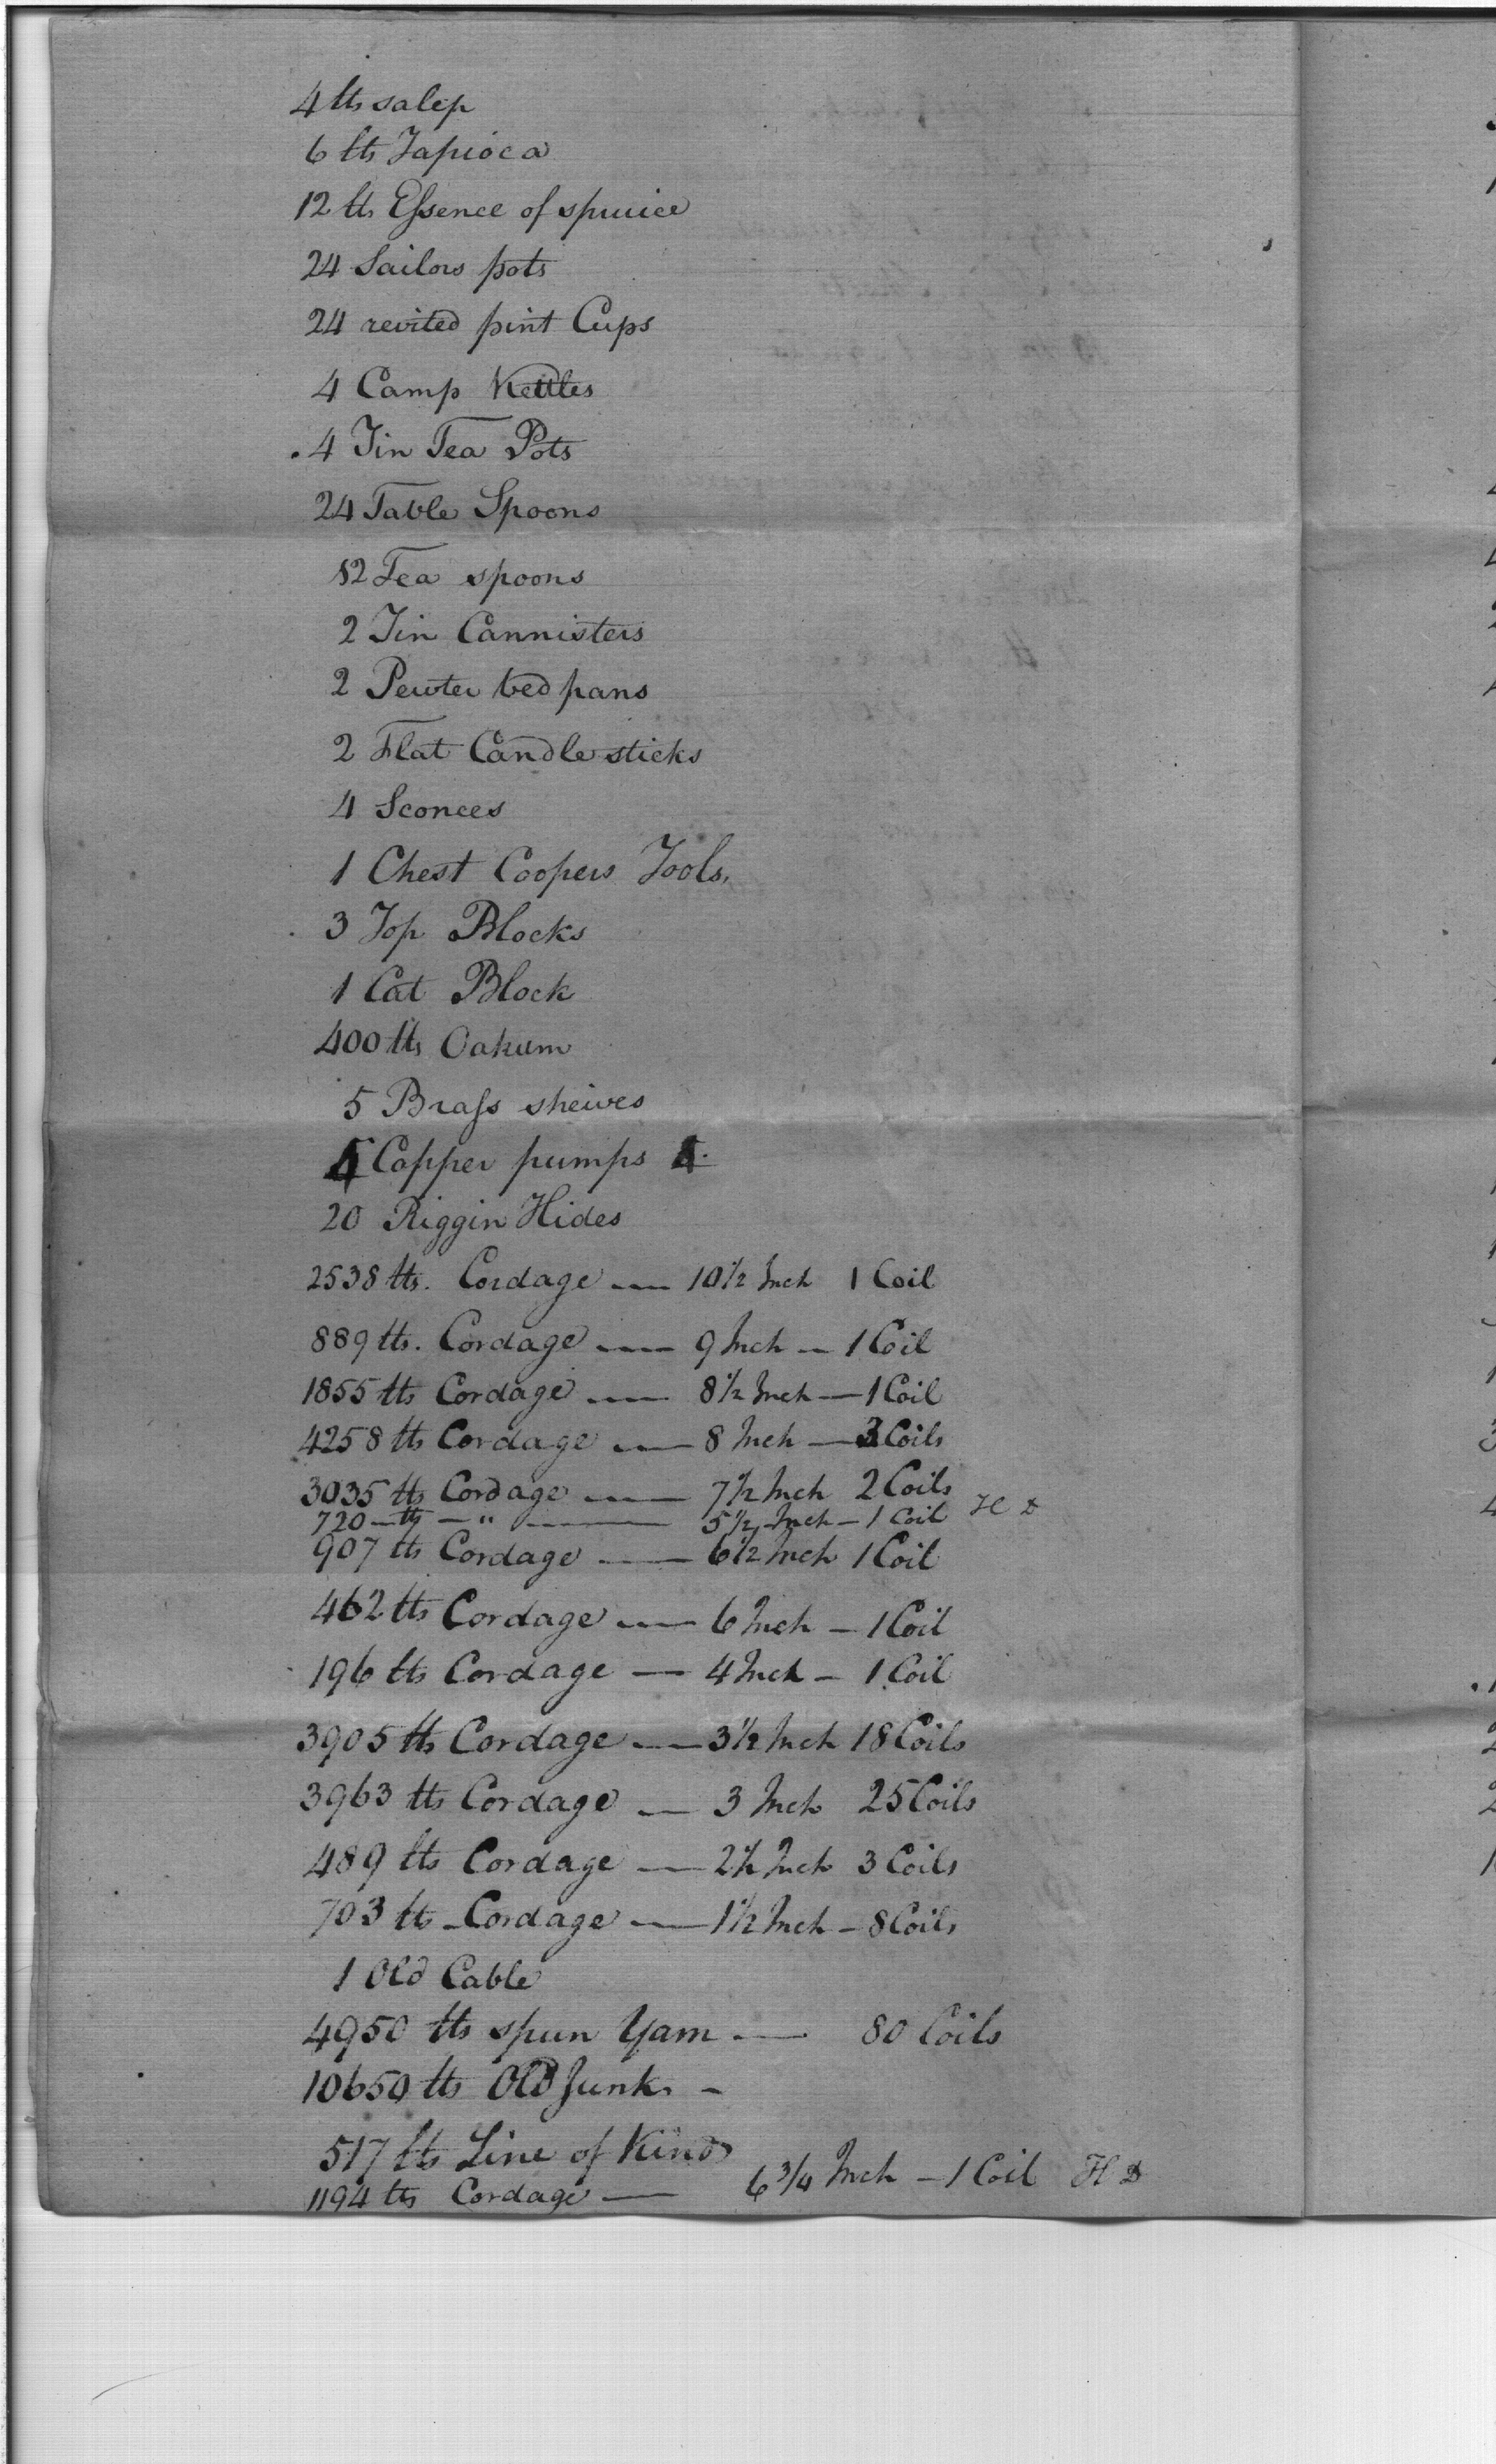 4 lbs salep
6 lbs Tapioca
12 lbs Essence of spruice
24 Sailors pots
24 revited pint Cups
4 Camp Kettles
4 Tin Tea Pots
24 Table Spoons
12 Tea spoons
2 Tin Cannisters
2 Pewter bed pans
2 Flat Candle sticks
4 Sconces
1 Chest Coopers Tools,
3 Top Blocks
1 Cat Block
400 lbs Oakum
5 Brass sheives
4 Copper pumps 4.
20 Riggin Hides
2538 lbs. Cordage — 10 1/2 Inch 1 Coil
889 lbs. Cordage — 9 Inch — 1 Coil
1855 lbs Cordage — 8 1/2 Inch — 1 Coil
4258 lbs Cordage — 8 Inch — 3 Coils
3035 lbs Cordage — 7 1/2 Inch 2 Coils
720 — lbs — " — 5 1/2 Inch — 1 Coil H D
907 lbs Cordage — 6 1/2 Inch 1 Coil
462 lbs Cordage — 6 Inch — 1 Coil
196 lbs Cordage — 4 Inch — 1 Coil
3905 lbs Cordage — 3 1/2 Inch 18 Coils
3963 lbs Cordage — 3 Inch 25 Coils
489 lbs Cordage — 2 1/2 Inch 3 Coils
703 lbs Cordage — 1 1/2 Inch — 8 Coils
1 Old Cable
4950 lbs spun Yarn — 80 Coils
10650 lbs Old Junk —
517 lbs Line of Kinds
1194 lbs Cordage — 6 3/4 Inch — 1 Coil H D